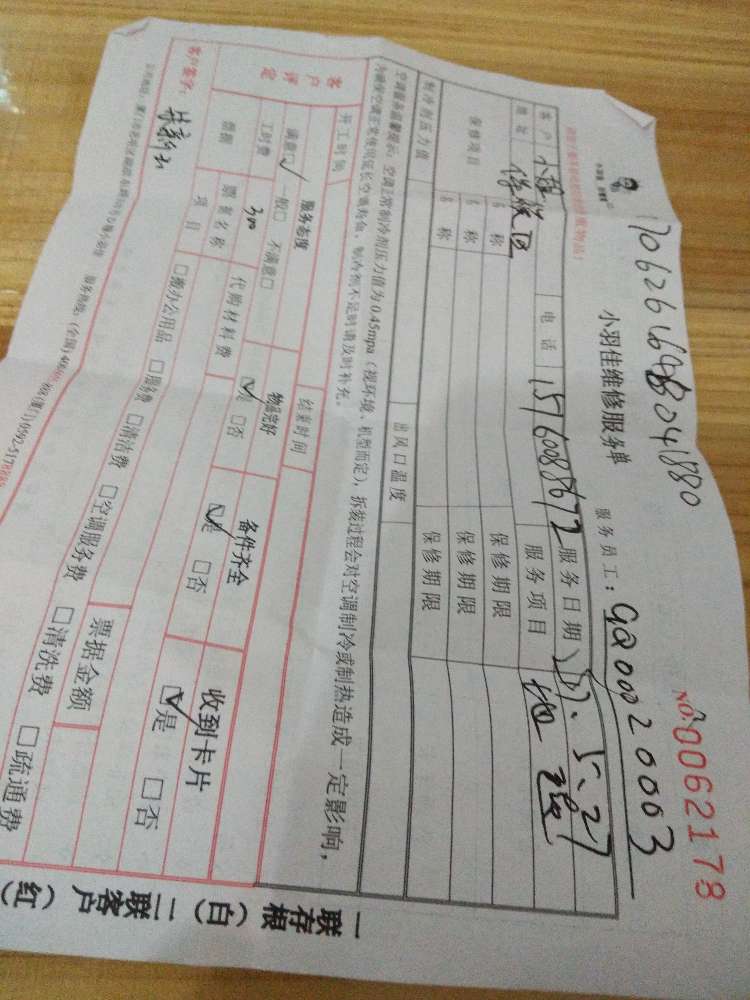 1706261698041880
NO:0062178
小羽佳维修服务单
服务员工: GQ00020063
客户 电话 15760088672 服务日期 17、5、27
地址 服务项目
保修项目 名称 保修期限
名称 保修期限
名称 保修期限
制冷剂压力值 出风口温度
空调正常制冷剂压力值为0.45mpa(视环境、机型而定),拆装过程会对空调制冷或制热造成一定影响,
开工时间 结束时间
客户评定 服务态度 物品完好 备件齐全 收到卡片
满意☑ 一般□ 不满意□ ☑是 □否 ☑是 □否 ☑是 □否
工时费 300 代购材料费
票据 票据名称 票据金额
项目 □搬办公用品 □服务费 □清洁费 □空调服务费 □清洗费 □疏通费
客户签字:
一联存根(白)二联客户(红)